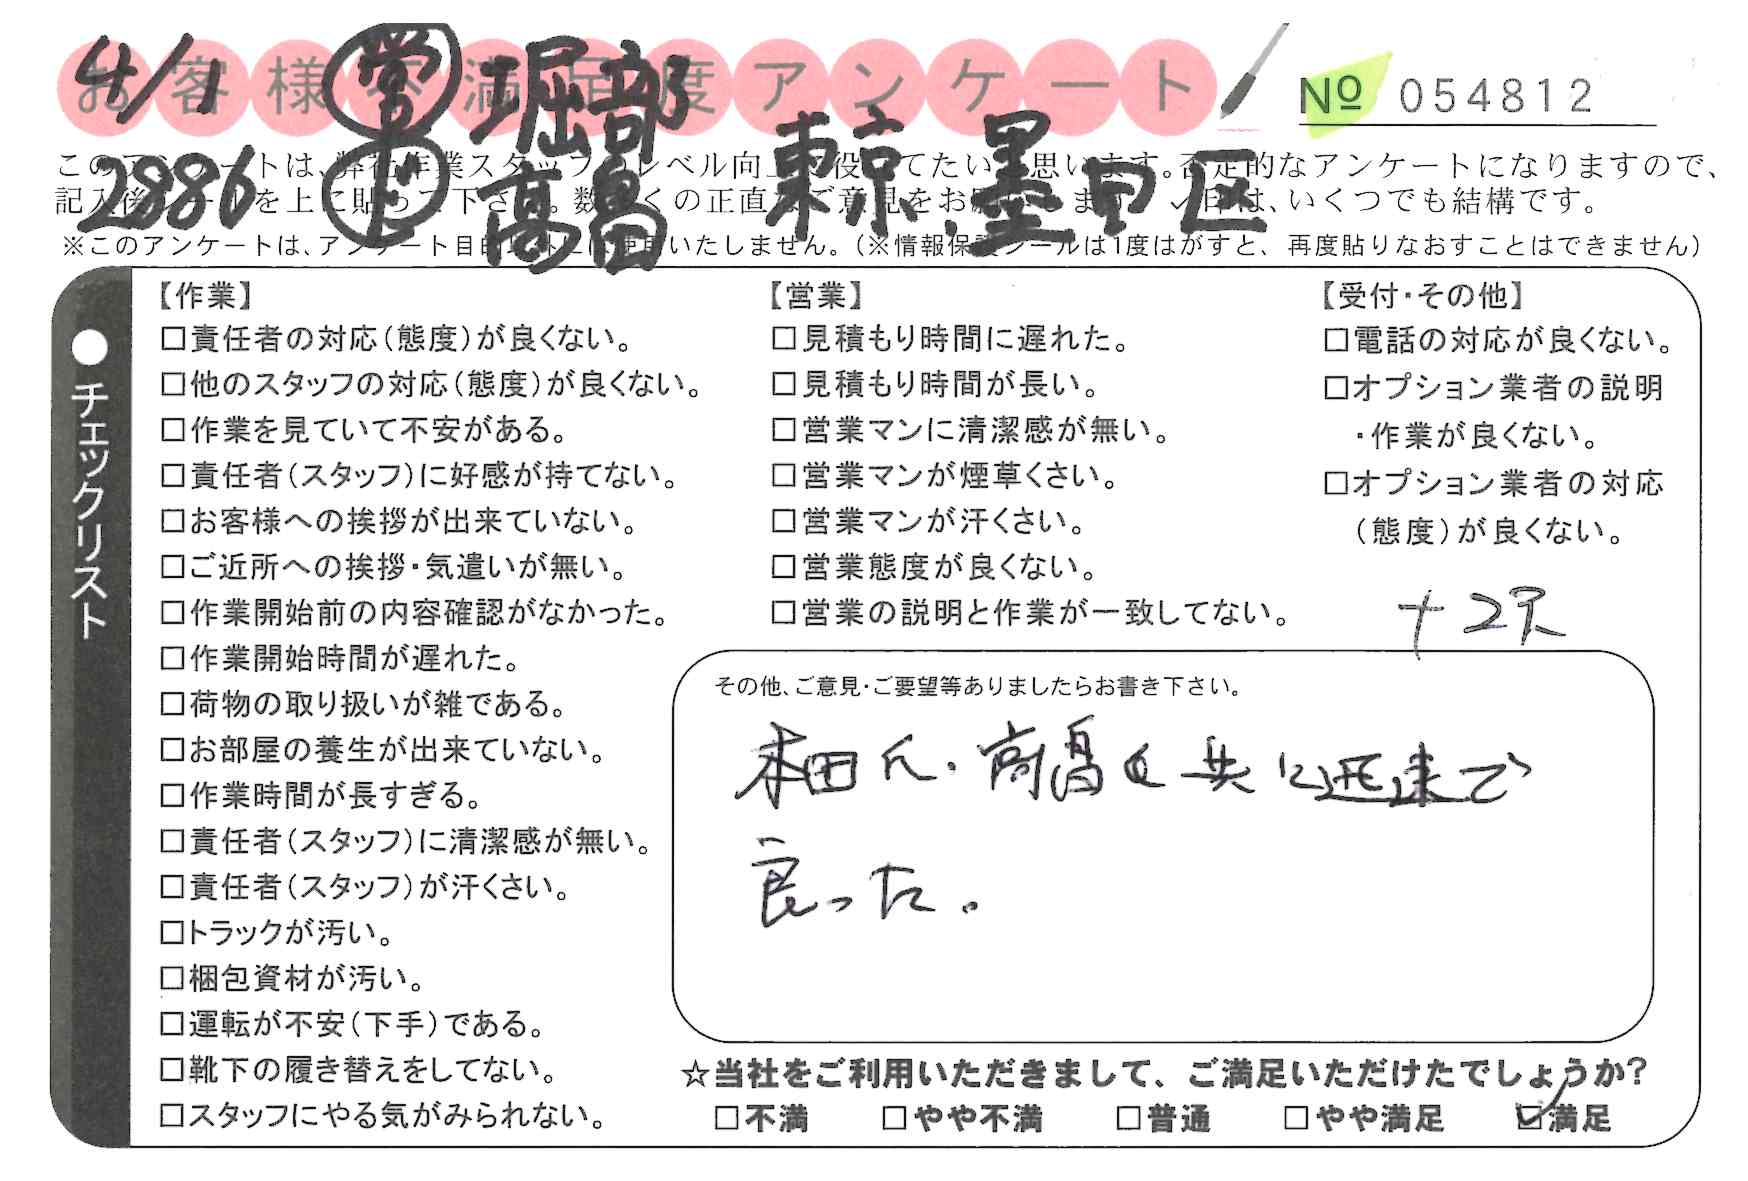 お客様不満足度アンケート
4/1 営 堀部
№ 054812
2886 ト 高畠 東京 墨田区
このアンケートは、弊社作業スタッフのレベル向上に役立てたいと思います。否定的なアンケートになりますので、
記入後シールを上に貼って下さい。数多くの正直なご意見をお願いします。レ印は、いくつでも結構です。
※このアンケートは、アンケート目的以外には使用いたしません。(※情報保護シールは1度はがすと、再度貼りなおすことはできません)
●チェックリスト
【作業】
□責任者の対応(態度)が良くない。
□他のスタッフの対応(態度)が良くない。
□作業を見ていて不安がある。
□責任者(スタッフ)に好感が持てない。
□お客様への挨拶が出来ていない。
□ご近所への挨拶・気遣いが無い。
□作業開始前の内容確認がなかった。
□作業開始時間が遅れた。
□荷物の取り扱いが雑である。
□お部屋の養生が出来ていない。
□作業時間が長すぎる。
□責任者(スタッフ)に清潔感が無い。
□責任者(スタッフ)が汗くさい。
□トラックが汚い。
□梱包資材が汚い。
□運転が不安(下手)である。
□靴下の履き替えをしてない。
□スタッフにやる気がみられない。
【営業】
□見積もり時間に遅れた。
□見積もり時間が長い。
□営業マンに清潔感が無い。
□営業マンが煙草くさい。
□営業マンが汗くさい。
□営業態度が良くない。
□営業の説明と作業が一致してない。
【受付・その他】
□電話の対応が良くない。
□オプション業者の説明
・作業が良くない。
□オプション業者の対応
(態度)が良くない。
その他、ご意見・ご要望等ありましたらお書き下さい。
本田氏・高畠氏共に迅速で
良った。
☆当社をご利用いただきまして、ご満足いただけたでしょうか?
□不満 □やや不満 □普通 □やや満足 ☑満足